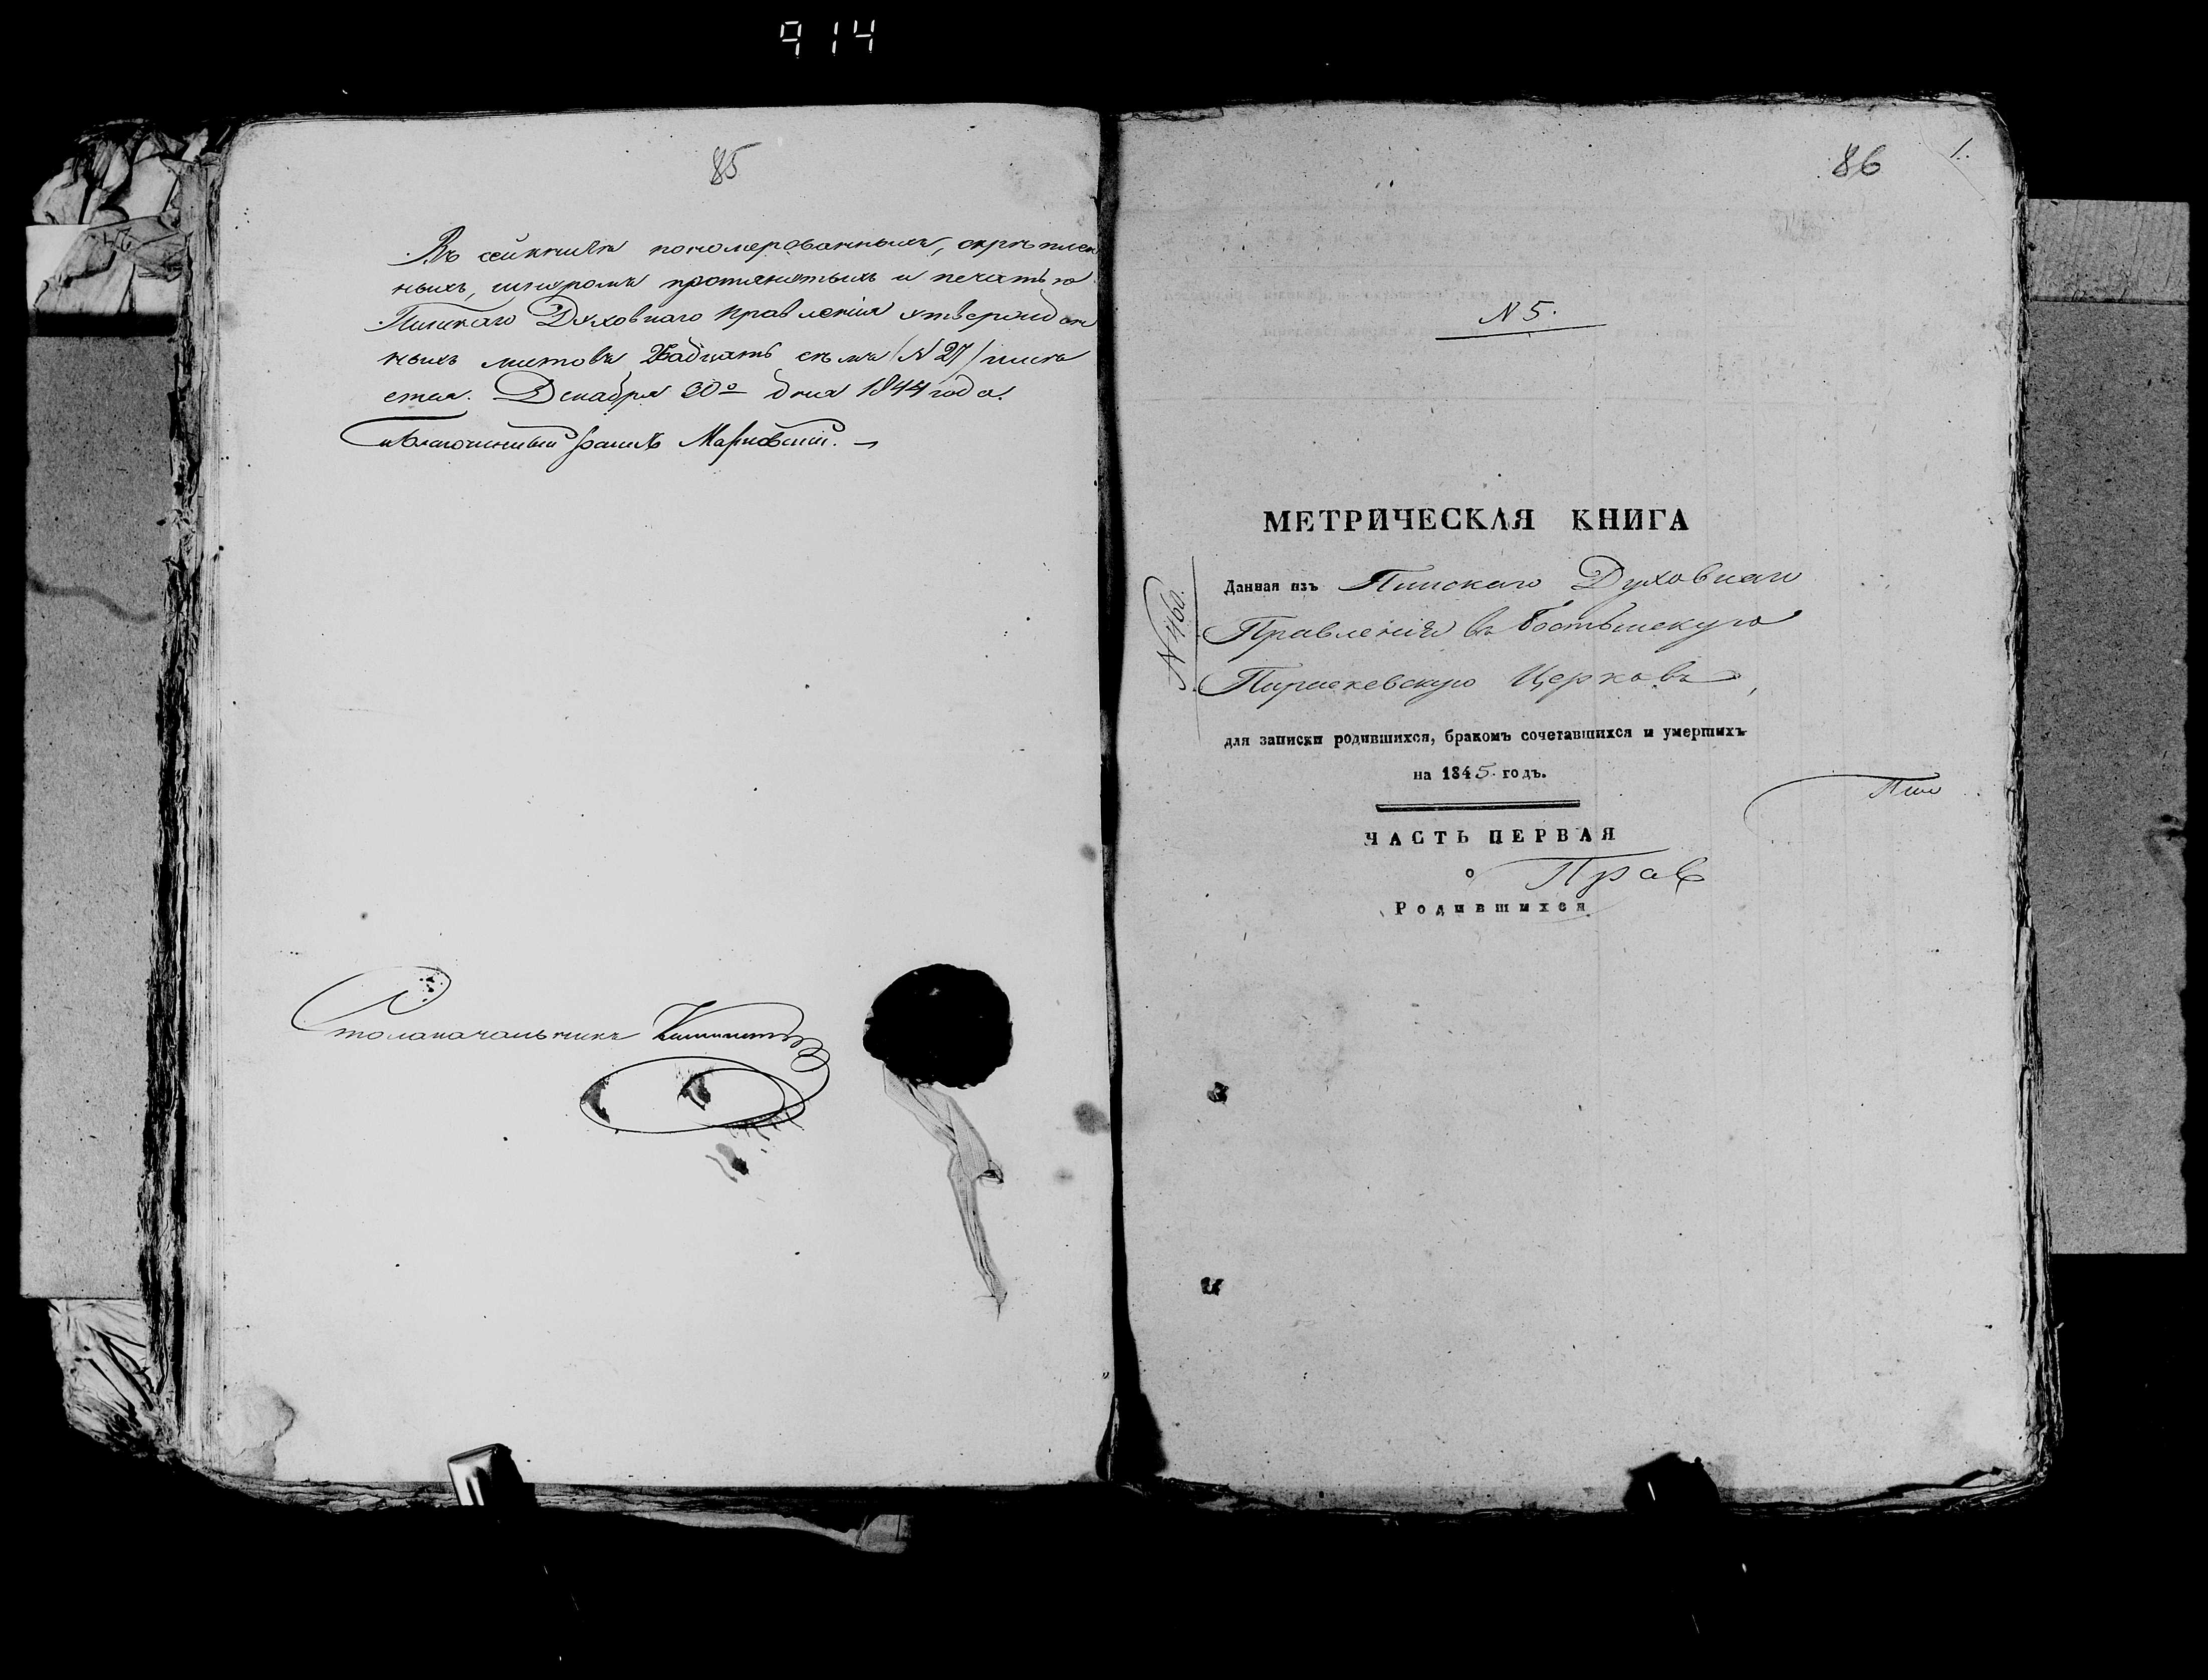 914
85
Въ сей книге пономерованныхъ, скреплен
ныхъ, шнуромъ протянутыхъ и печатью
Пинскаго Духовнаго Правленія утвержден
ныхъ листовъ двадцать семь /N 27/ числи
тся. Декабря 30го дня 1844 года.
Благочинный Марковскій. —
Столоначальникъ
86
1.
N 5.
МЕТРИЧЕСКАЯ КНИГА
N 460.
Данная изъ Пинскаго Духовнаго
Правленія въ Бостынскую
Параскевскую Церковь,
для записки родившихся, бракомъ сочетавшихся и умершихъ
на 1845. годъ.
Пин
ЧАСТЬ ПЕРВАЯ
о Прав
Родившихся